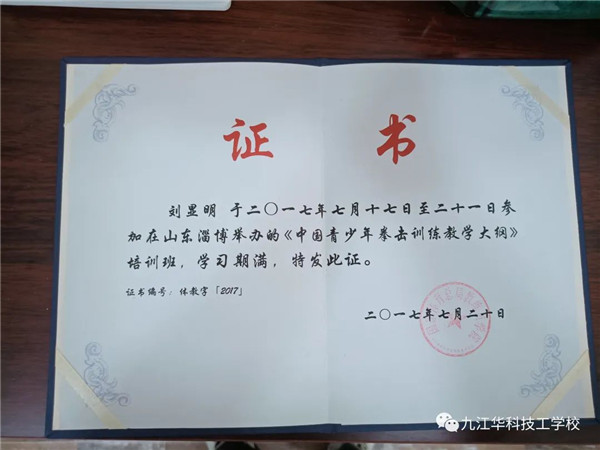 证 书
刘显明 于二〇一七年七月十七日至二十一日参
加在山东淄博举办的《中国青少年拳击训练教学大纲》
培训班，学习期满，特发此证。
证书编号：体教字「2017」
二〇一七年七月二十日
九江华科技工学校